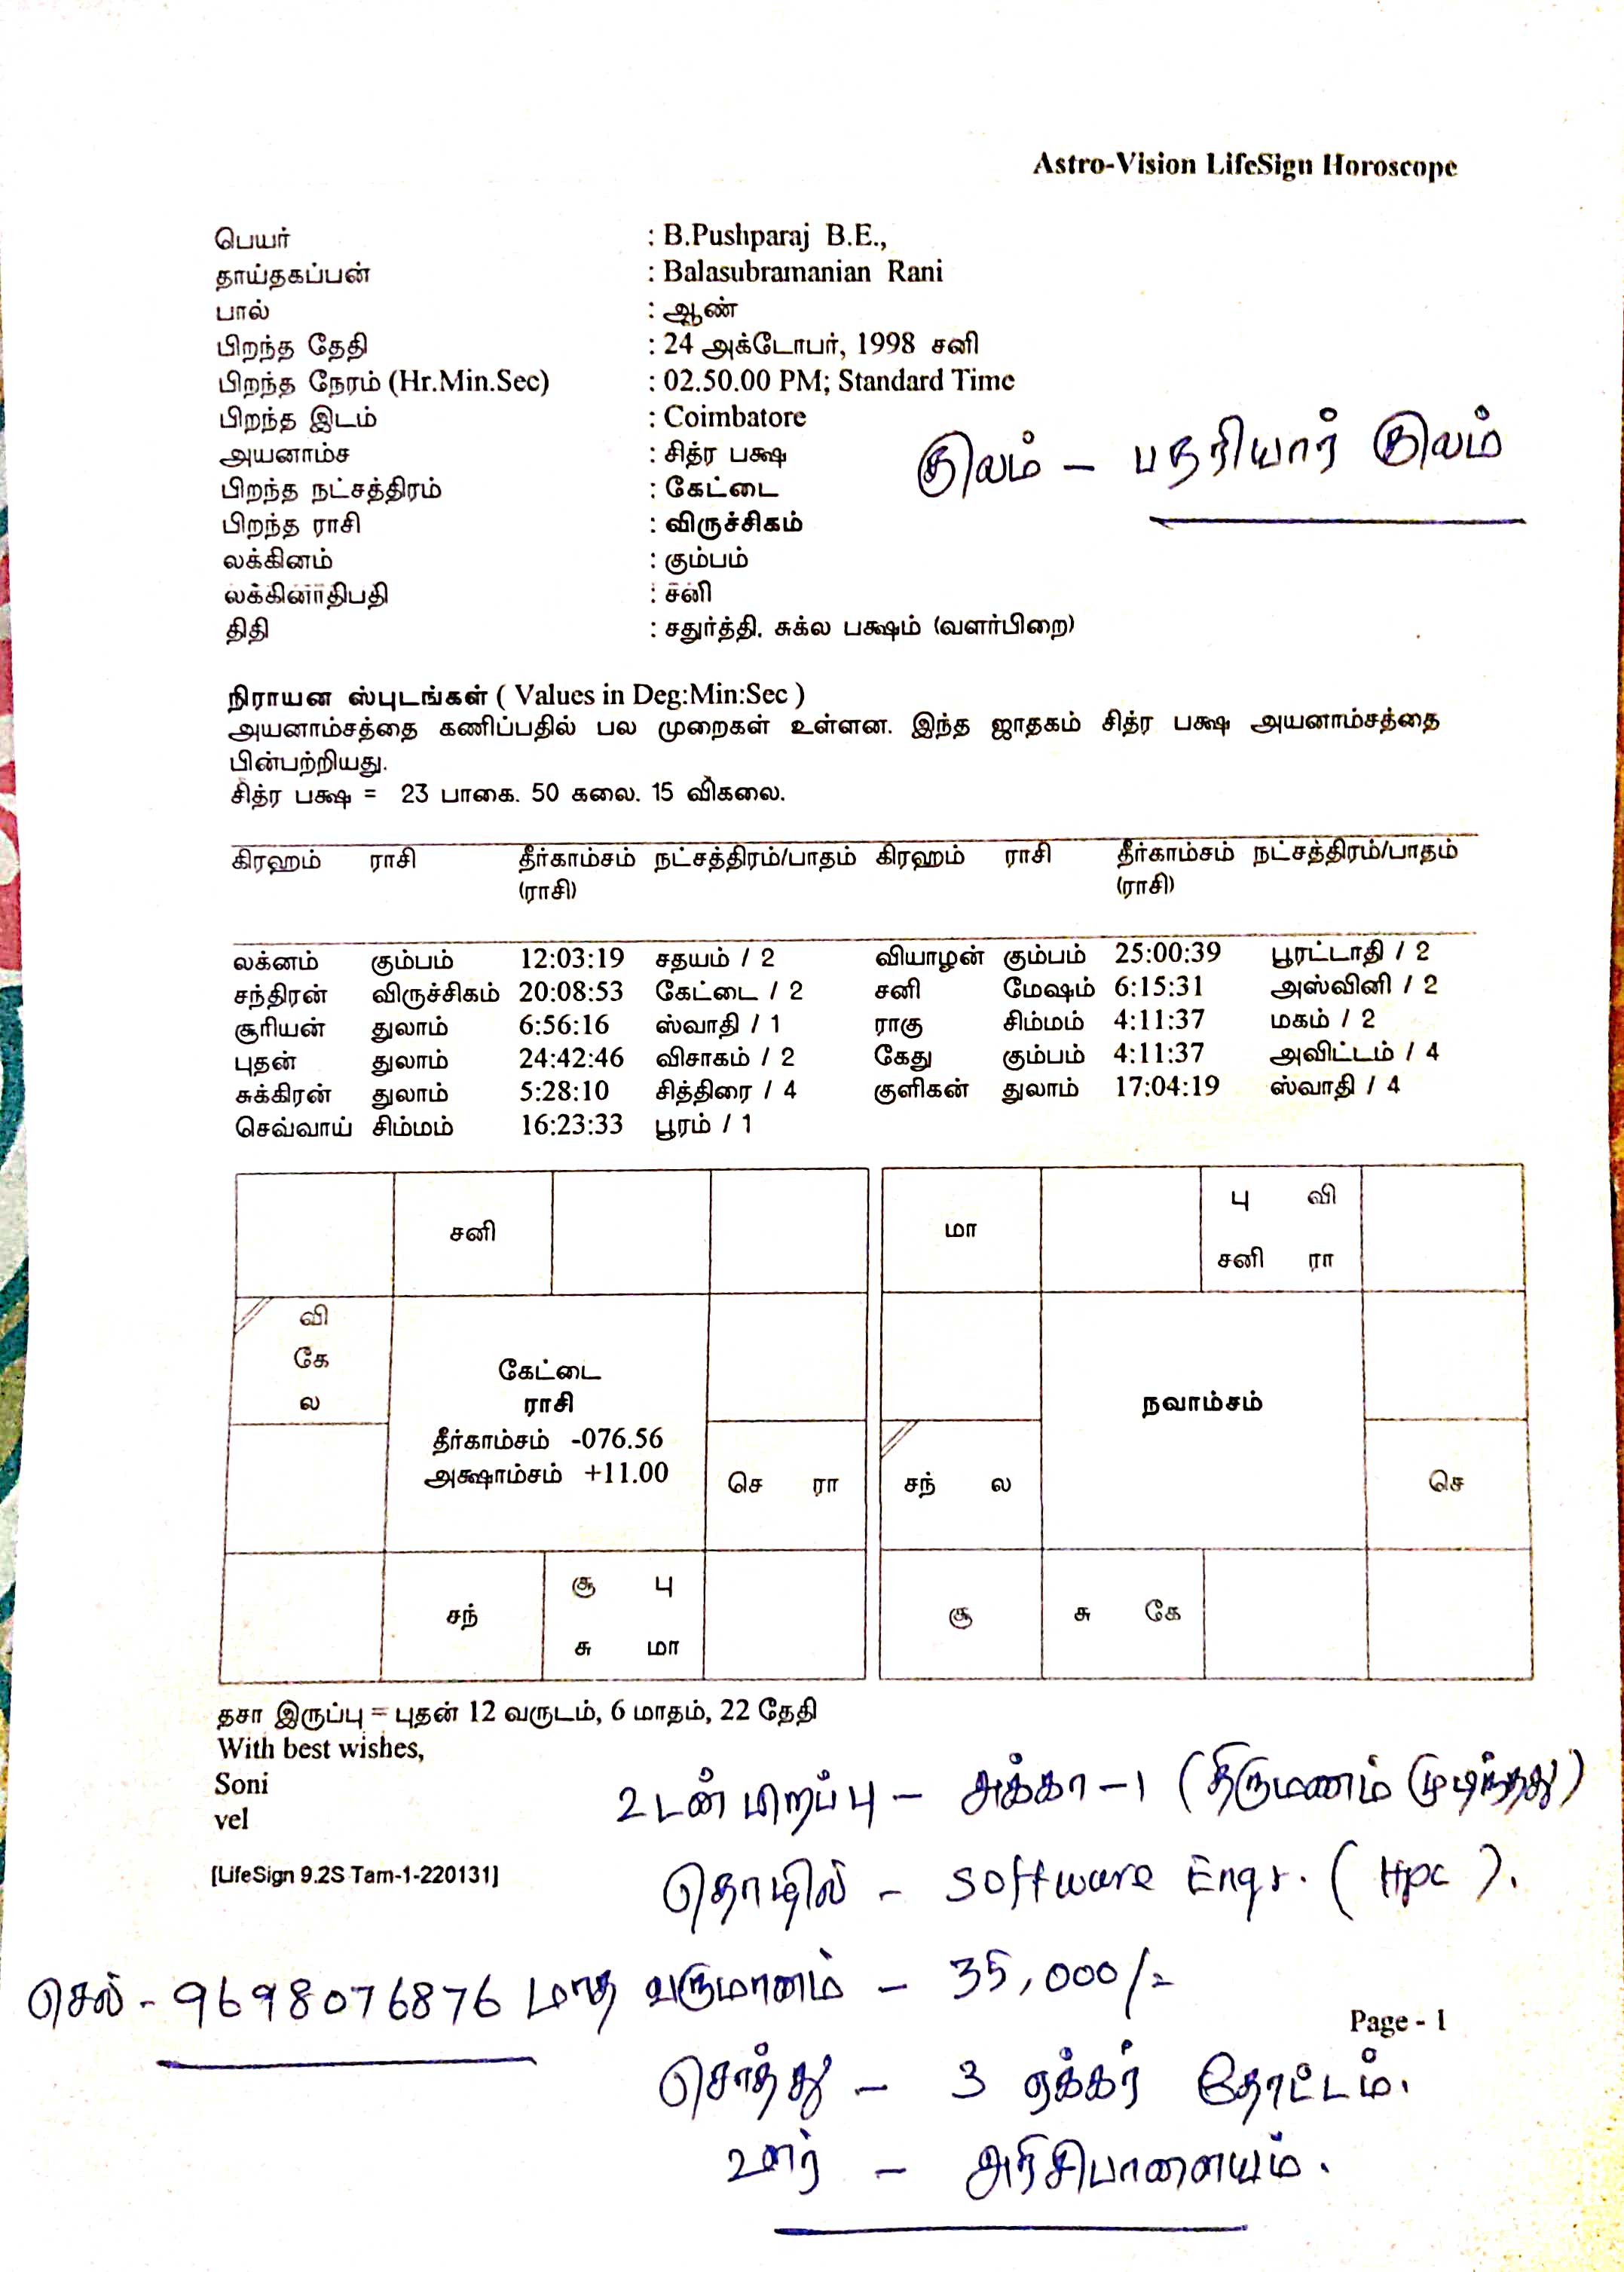 Astro-Vision LifeSign Horoscope
பெயர் : B.Pushparaj B.E.,
தாய்தகப்பன் : Balasubramanian Rani
பால் : ஆண்
பிறந்த தேதி : 24 அக்டோபர், 1998 சனி
பிறந்த நேரம் (Hr.Min.Sec) : 02.50.00 PM; Standard Time
பிறந்த இடம் : Coimbatore
அயனாம்ச : சித்ர பக்ஷ
குலம் – பதரியார் குலம்
பிறந்த நட்சத்திரம் : கேட்டை
பிறந்த ராசி : விருச்சிகம்
லக்கினம் : கும்பம்
லக்கினாதிபதி : சனி
திதி : சதுர்த்தி. சுக்ல பக்ஷம் (வளர்பிறை)
நிராயன ஸ்புடங்கள் ( Values in Deg:Min:Sec )
அயனாம்சத்தை கணிப்பதில் பல முறைகள் உள்ளன. இந்த ஜாதகம் சித்ர பக்ஷ அயனாம்சத்தை
பின்பற்றியது.
சித்ர பக்ஷ = 23 பாகை. 50 கலை. 15 விகலை.
கிரஹம் ராசி தீர்காம்சம் நட்சத்திரம்/பாதம் கிரஹம் ராசி தீர்காம்சம் நட்சத்திரம்/பாதம்
(ராசி) (ராசி)
லக்னம் கும்பம் 12:03:19 சதயம் / 2 வியாழன் கும்பம் 25:00:39 பூரட்டாதி / 2
சந்திரன் விருச்சிகம் 20:08:53 கேட்டை / 2 சனி மேஷம் 6:15:31 அஸ்வினி / 2
சூரியன் துலாம் 6:56:16 ஸ்வாதி / 1 ராகு சிம்மம் 4:11:37 மகம் / 2
புதன் துலாம் 24:42:46 விசாகம் / 2 கேது கும்பம் 4:11:37 அவிட்டம் / 4
சுக்கிரன் துலாம் 5:28:10 சித்திரை / 4 குளிகன் துலாம் 17:04:19 ஸ்வாதி / 4
செவ்வாய் சிம்மம் 16:23:33 பூரம் / 1
சனி
வி
கே
ல
கேட்டை
ராசி
தீர்காம்சம் -076.56
அக்ஷாம்சம் +11.00
செ ரா
சந்
சூ பு
சு மா
மா
பு வி
சனி ரா
நவாம்சம்
சந் ல
செ
சூ
சு கே
தசா இருப்பு = புதன் 12 வருடம், 6 மாதம், 22 தேதி
With best wishes,
Soni
vel
உடன் பிறப்பு – அக்கா – 1 (திருமணம் முடிந்தது)
[LifeSign 9.2S Tam-1-220131]
தொழில் – Software Engr. ( Hpc ).
செல் - 9698076876 மாத வருமானம் – 35,000/-
Page - 1
சொத்து – 3 ஏக்கர் தோட்டம்.
ஊர் – அரிசிபாளையம்.